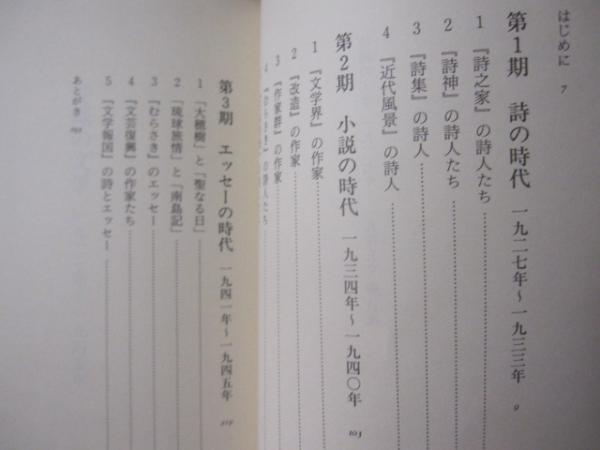 はじめに 7
第1期 詩の時代 一九二七年〜一九三三年 9
1 『詩之家』の詩人たち
2 『詩神』の詩人たち
3 『詩集』の詩人
4 『近代風景』の詩人
第2期 小説の時代 一九三四年〜一九四〇年 103
1 『文学界』の作家
2 『改造』の作家
3 『作家群』の作家
4 『むらさき』の詩人たち
第3期 エッセーの時代 一九四一年〜一九四五年
1 「大榕樹」と「聖なる日」
2 「琉球旅情」と「南島記」
3 『むらさき』のエッセー
4 『文芸復興』の作家たち
5 『文学報国』の詩とエッセー
あとがき